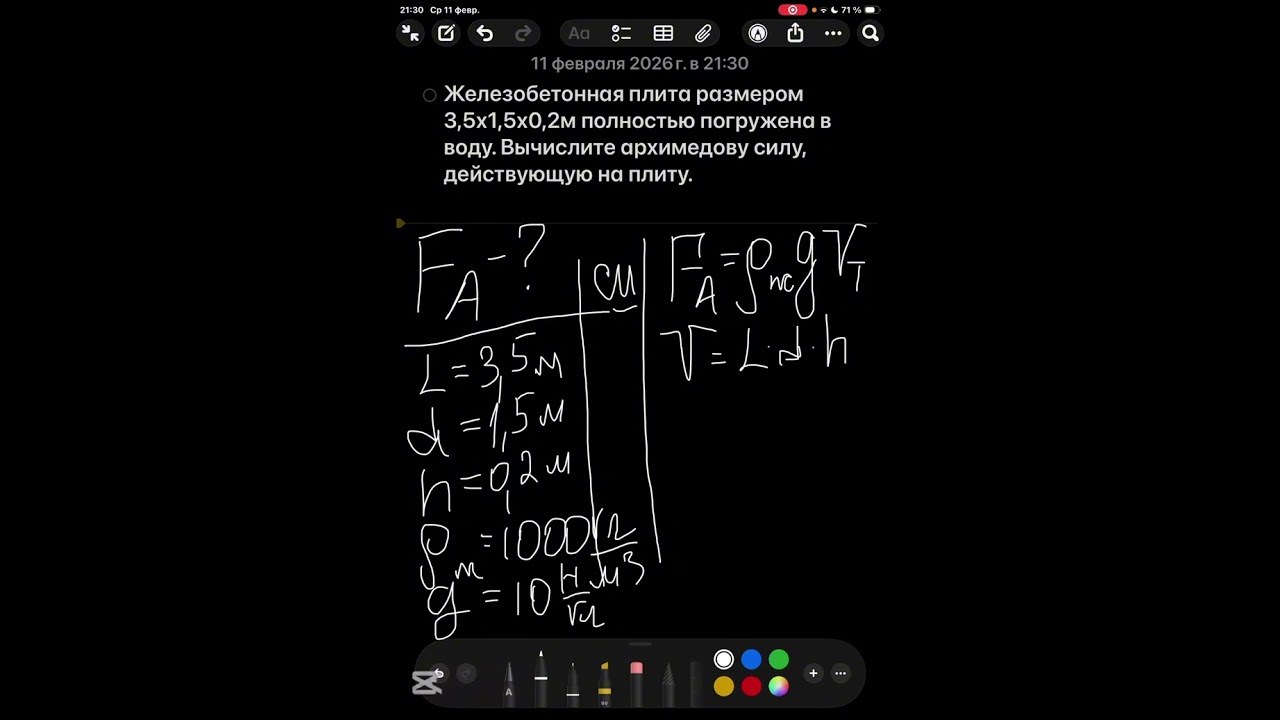 21:30 Ср 11 февр.
71 %
Aa
11 февраля 2026 г. в 21:30
Железобетонная плита размером
3,5х1,5х0,2м полностью погружена в
воду. Вычислите архимедову силу,
действующую на плиту.
F_A - ?
СИ
L = 3,5 м
d = 1,5 м
h = 0,2 м
ρ_ж = 1000 кг/м³
g = 10 Н/кг
F_A = ρ_ж g V_T
V = L · d · h
A